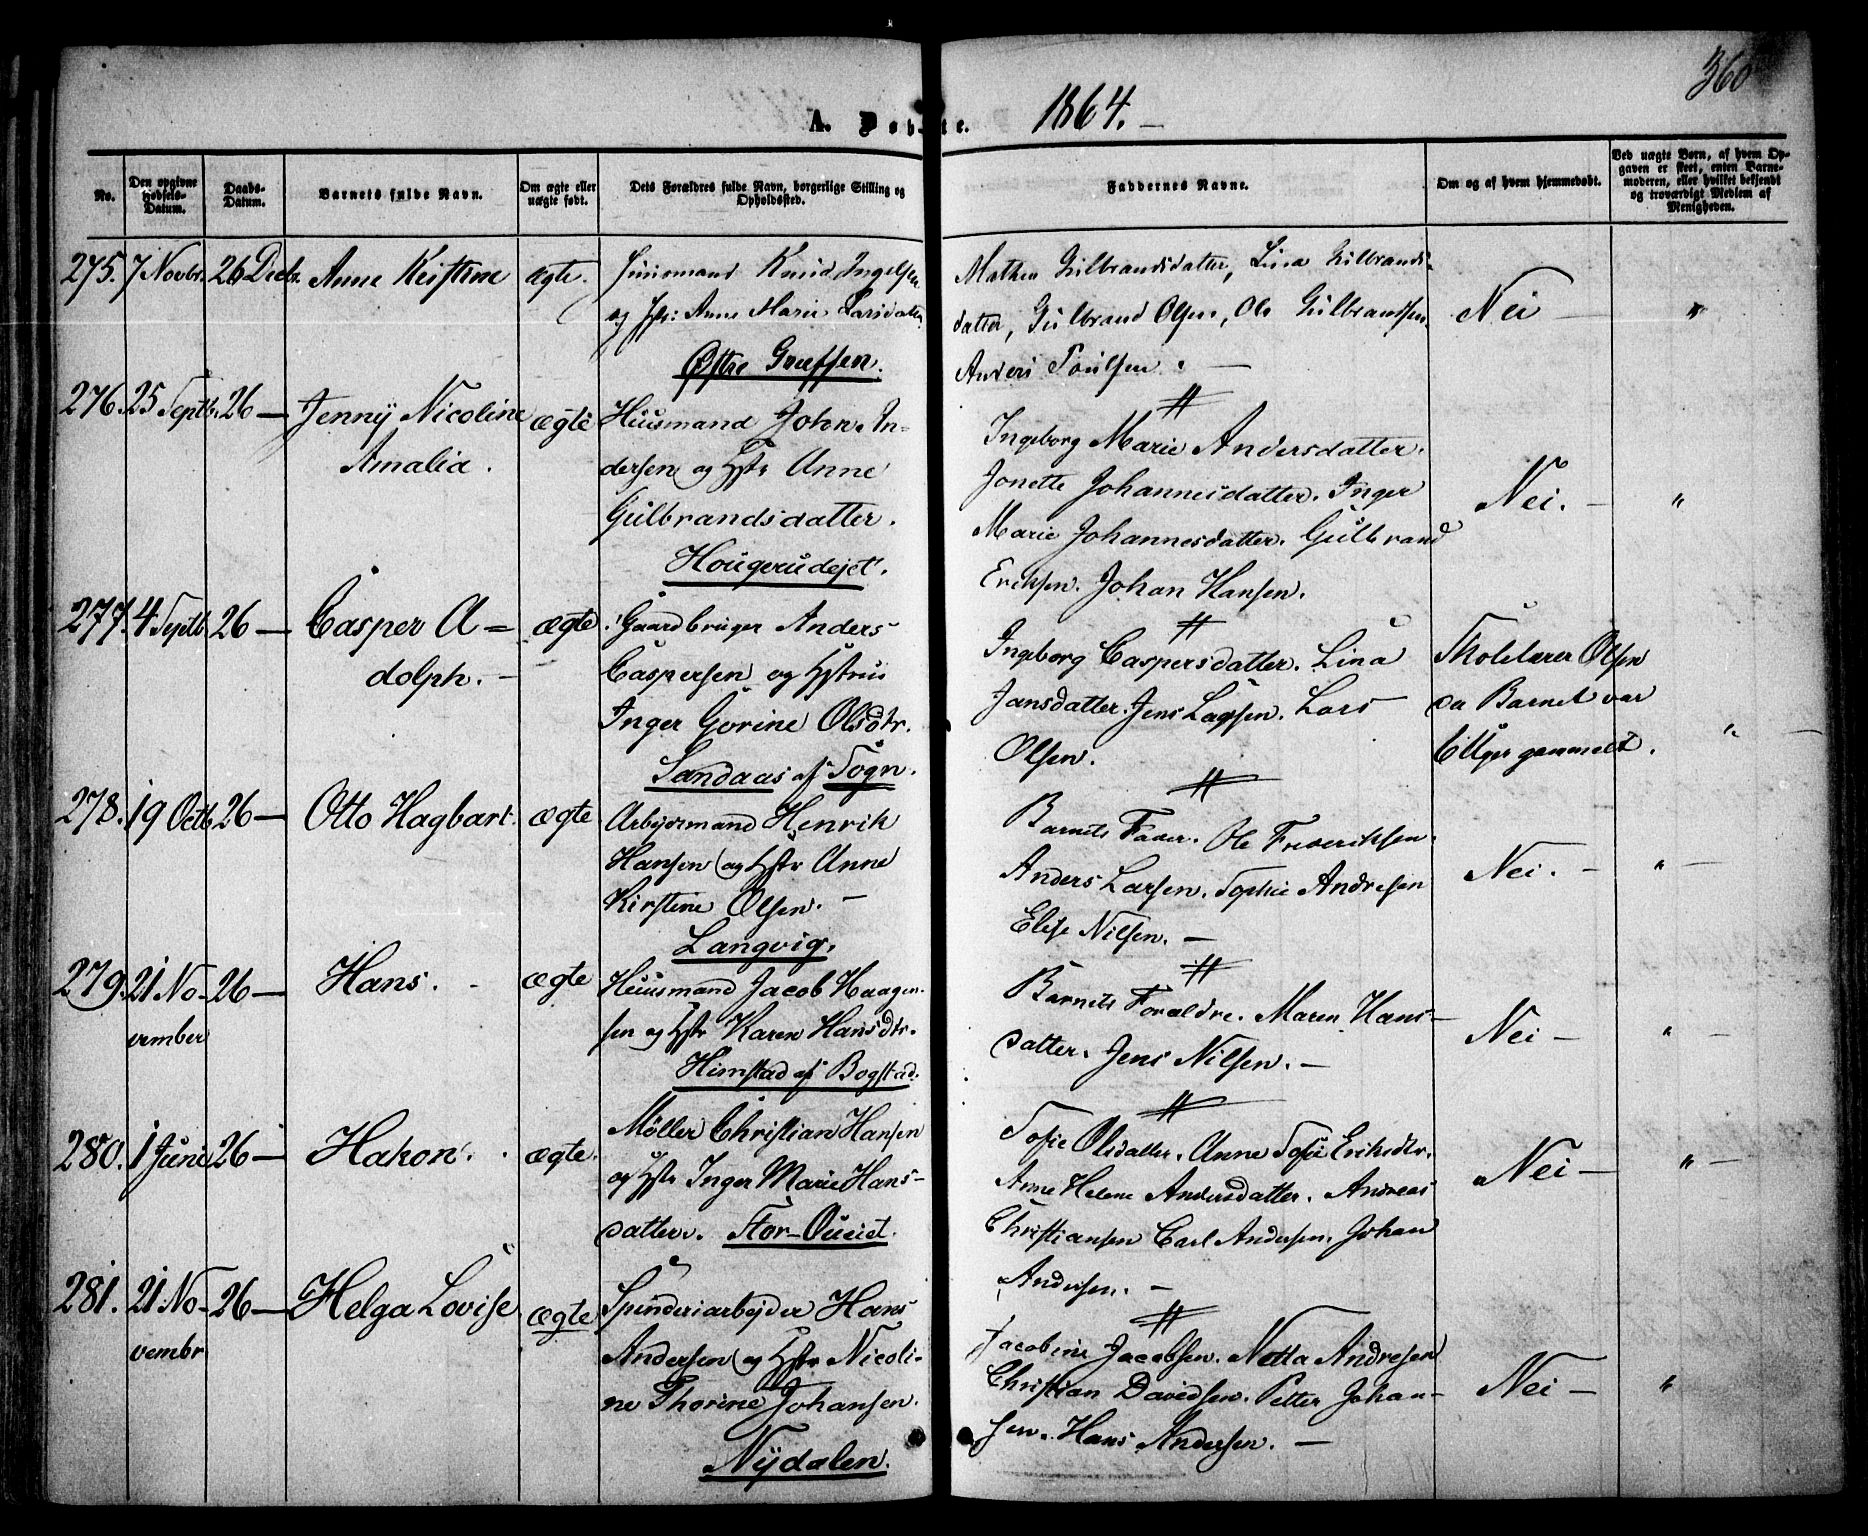 360
A. Døbte. 1864. —
No.
Den opgivne Fødsels-Datum.
Daabs-Datum.
Barnets fulde Navn.
Om ægte eller uægte født.
Dets Forældres fulde Navn, borgerlige Stilling og Opholdssted.
Faddernes Navne.
Om og af hvem hjemmedøbt.
Ved uægte Børn, af hvem Opgaven er skeet, enten Barnemoderen, eller hvilket bekjendt og troværdigt Medlem af Menigheden.
275. 7 Novbr. 26 Decbr. Anne Kristine ægte.
Huusmand Knud Ingelsen
og Hstr: Anne Marie Larsdatter
Østre Grefsen.
Mathea Gulbrandsdatter, Lina Gulbrands-
datter, Gulbrand Olsen, Ole Gulbrandsen,
Anders Poulsen. —
Nei — "
276. 25 Septb. 26 — Jenny Nicoline
Amalia. ægte
Huusmand Johan An-
dersen og Hstr Anne
Gulbrandsdatter.
Hougerudejet.
Ingeborg Marie Andersdatter.
Jonette Johannesdatter. Inger
Marie Johannesdatter. Gulbrand
Eriksen. Johan Hansen.
Nei. — "
277. 4 Septb. 26 — Casper A-
dolph. — ægte
Gaardbruger Anders
Caspersen og Hstru
Inger Gorine Olsdtr.
Sandaas af Sogn.
Ingeborg Caspersdatter. Lina
Jansdatter. Jens Larsen. Lars
Olsen.
Skolelærer Olsen
da Barnet var
6 Uger gammelt. " —
278. 19 Octb. 26 — Otto Hagbart. ægte
Arbejdsmand Henrik
Hansen og Hstr Anne
Kirstine Olsen. —
Langvig.
Barnets Fader. Ole Frederiksen.
Anders Larsen. Sophie Andresen
Elise Nilsen. —
Nei. — " —
279. 21 No-
vember 26 — Hans. - ægte
Huusmand Jacob Haagen-
sen og Hstr Karen Hansdtr.
Himstad af Bogstad.
Barnets Forældre. Maren Hans-
datter. Jens Nilsen. —
Nei — " —
280. 1 Juni 26 — Hakon. ægte.
Møller Christian Hansen
og Hstr Inger Marie Hans-
datter. Stor-Øueiet.
Sofie Olsdatter. Anne Sofie Eriksdtr.
Anne Helene Andersdatter. Andreas
Christiansen Carl Andersen. Johan
Andersen. —
Nei — " —
281. 21 No-
vembr 26 — Helga Lovise ægte
Spinderiarbejder Hans
Andersen og Hstr Nicoli-
ne Thorine Johansen.
Nydalen.
Jacobine Jacobsen. Netta Andresen
Christian Davidsen. Petter Johan-
sen. Hans Andersen. —
Nei — "